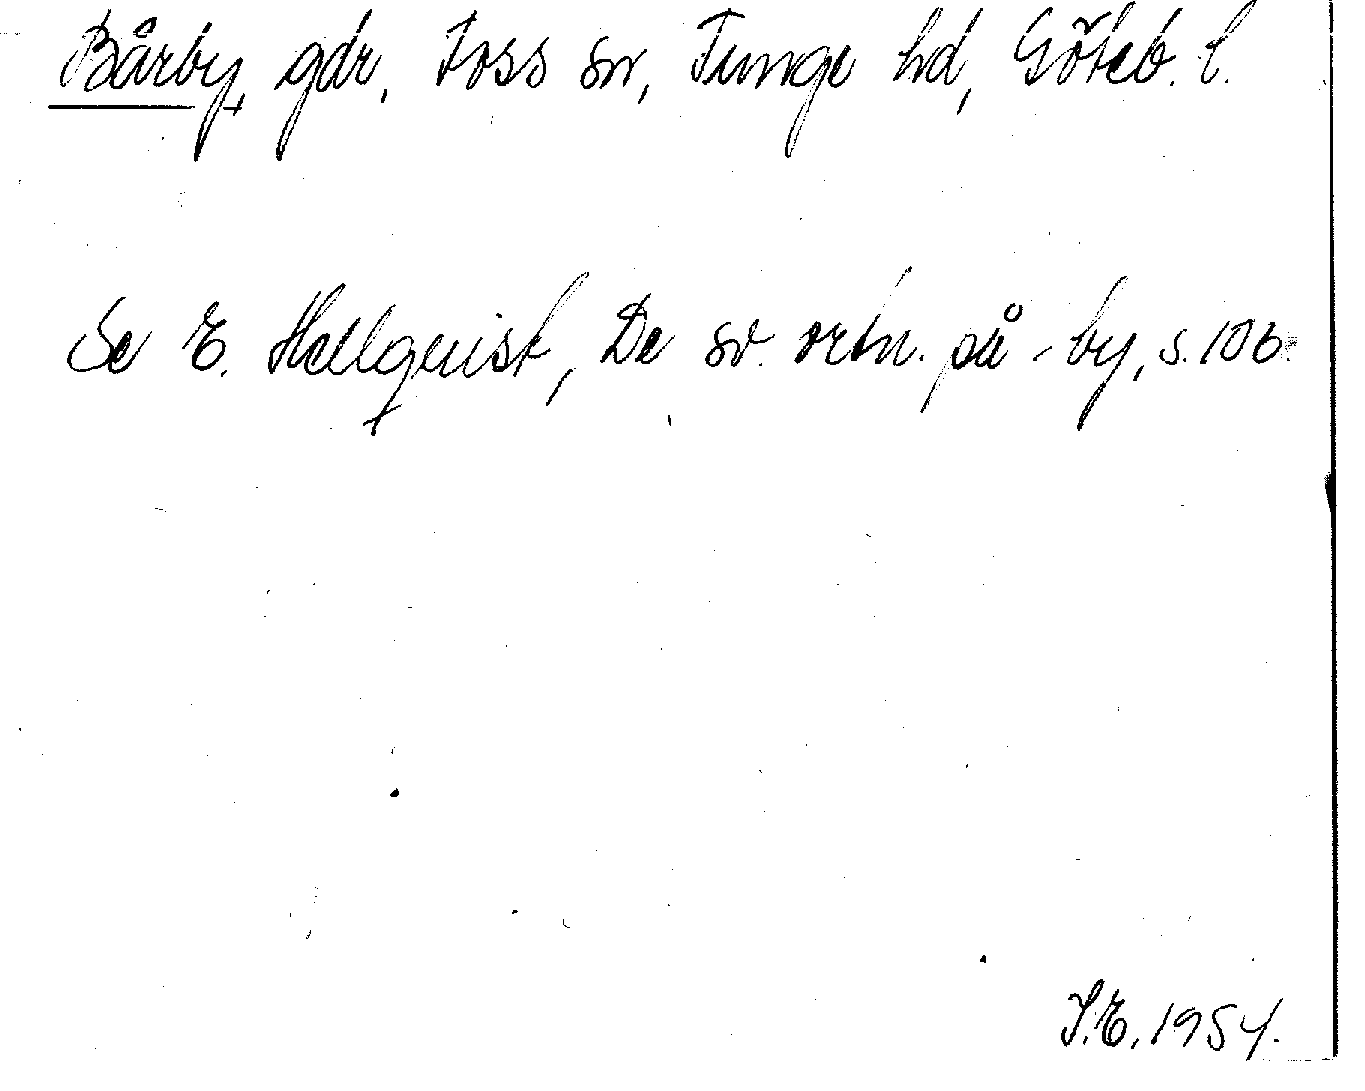 Bårby, gdr, Foss sn, Tunge hd, Göteb. l.
Se E. Hellquist, De sv. ortn. på -by, s. 106.
S.E. 1954.